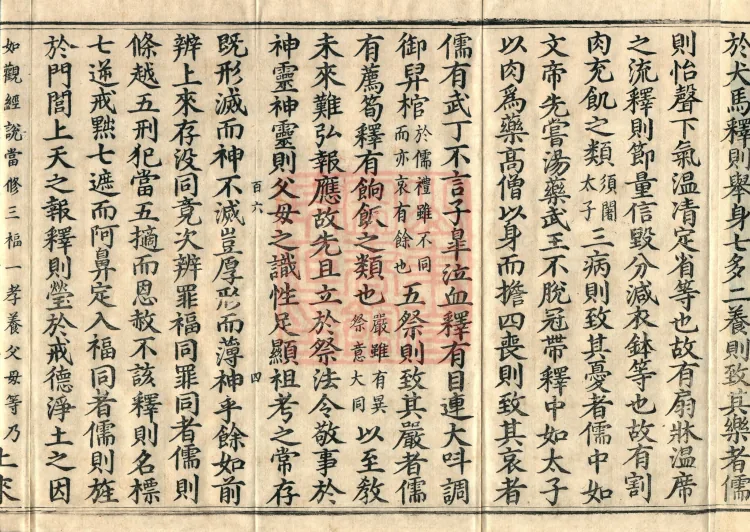 於犬馬釋則舉身七多二養則致其樂者儒
則怡聲下氣温清定省等也故有扇牀温席
之流釋則節量信毀分減衣鉢等也故有割
肉充飢之類須闍太子三病則致其憂者儒中如
文帝先嘗湯藥武王不脫冠帶釋中如太子
以肉爲藥高僧以身而擔四喪則致其哀者
儒有武丁不言子臯泣血釋有目連大叫調
御舁棺於儒禮雖不同而亦哀有餘也五祭則致其嚴者儒
有薦筍釋有餉飯之類也嚴雖有異祭意大同以至教
未來難弘報應故先且立於祭法令敬事於
神靈神靈則父母之識性足顯祖考之常存
百六 四
既形滅而神不滅豈厚形而薄神乎餘如前
辨上來存没同竟次辨罪福同罪同者儒則
條越五刑犯當五擿而恩赦不該釋則名標
七逆戒黜七遮而阿鼻定入福同者儒則旌
於門閭上天之報釋則瑩於戒德淨土之因
如觀經說當修三福一孝養父母等乃上來